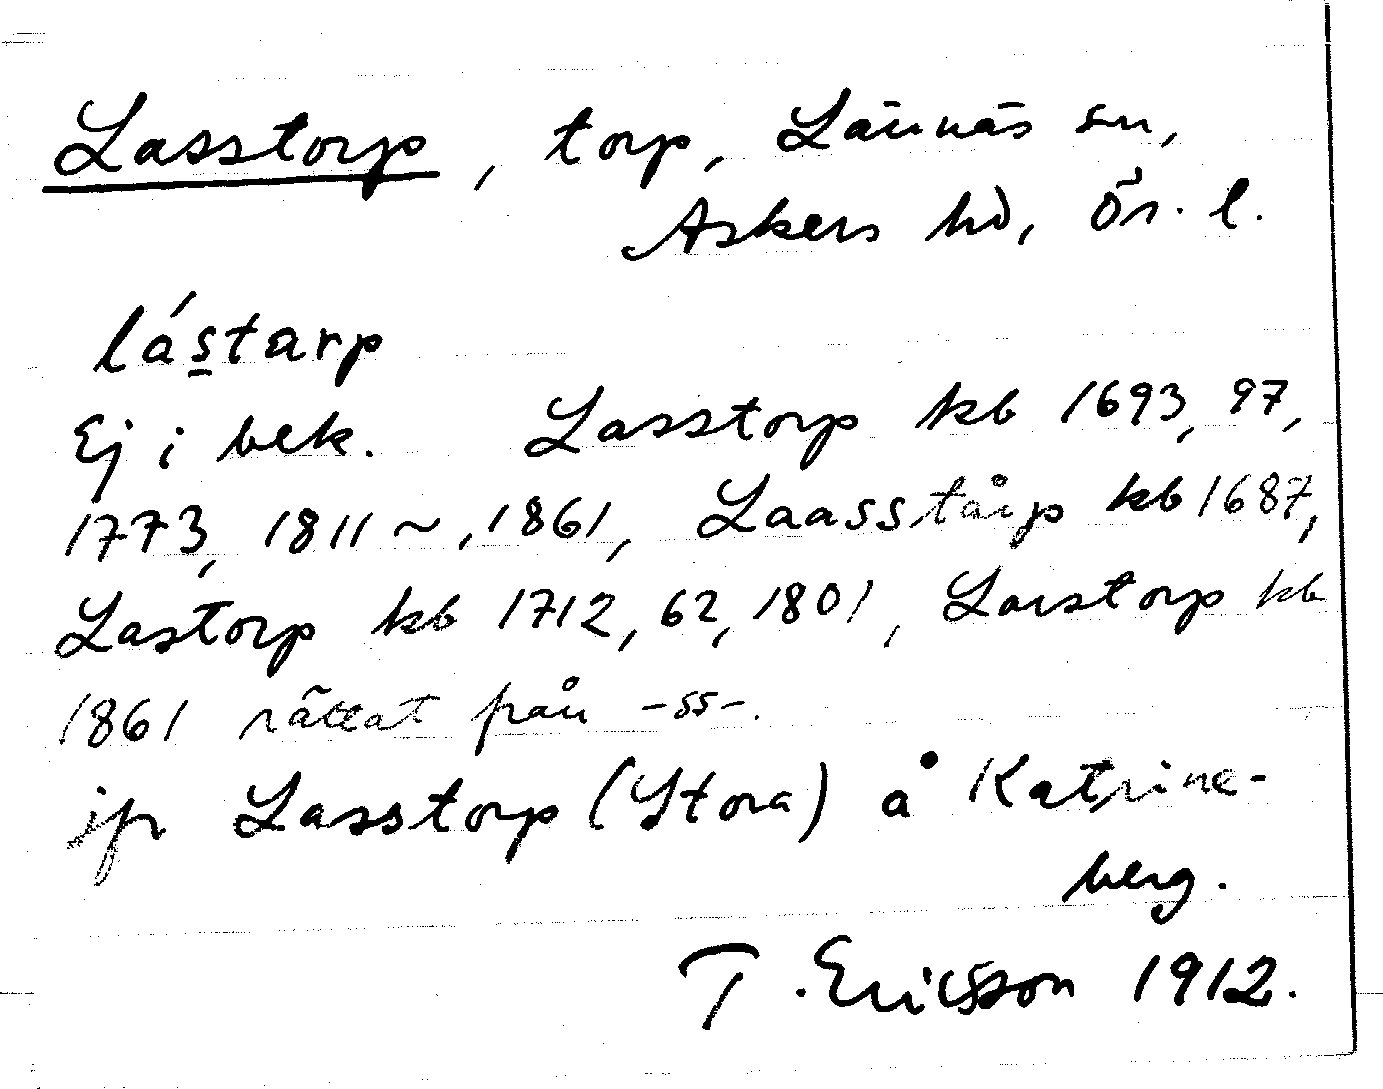 Lasstorp, torp, Lännäs sn,
Askers hd, Ör. l.
lástarp
Ej i bek. Lasstorp kb 1693, 97,
1773, 1811 ~, 1861, Laasstårp kb 1687,
Lastorp kb 1712, 62, 1801, Larstorp kb
1861 rättat från -ss-.
jfr Lasstorp (Stora) å Katrine-
berg.
T. Ericsson 1912.